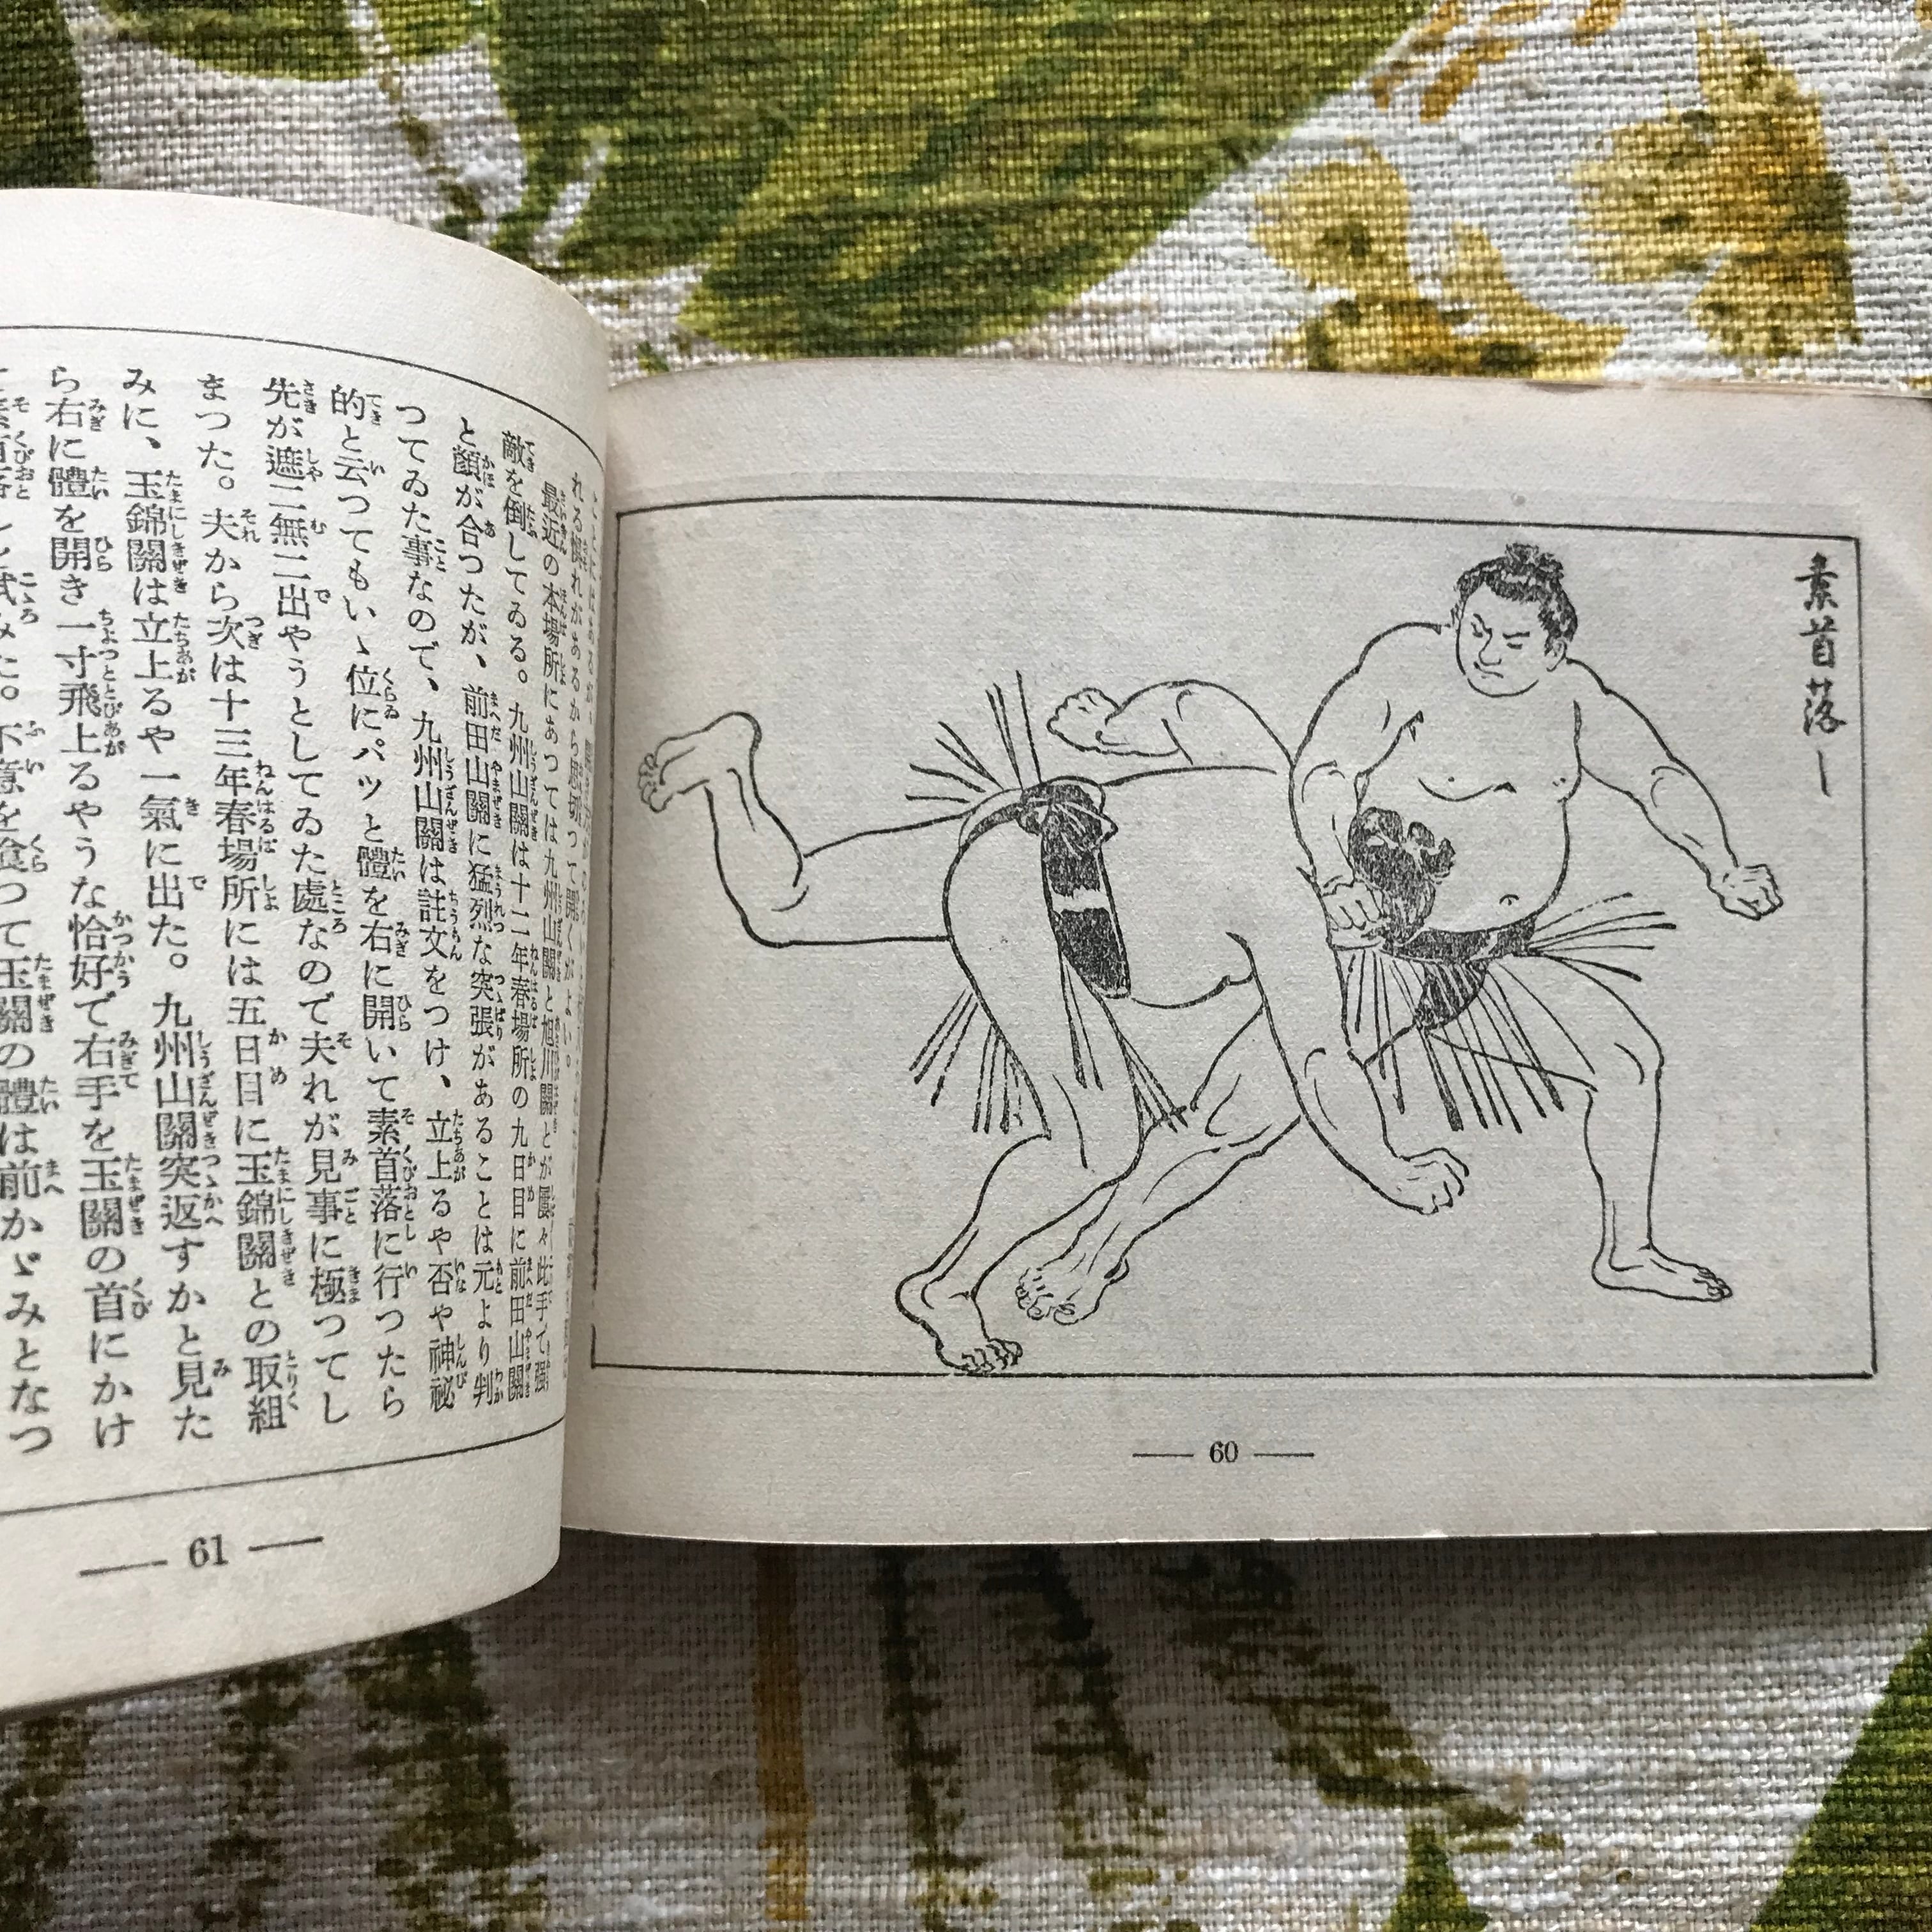 素首落し
60
れる惧れがあるから思切つて開くがよい。
最近の本場所にあつては九州山關と旭川關とが屢々此手で强
敵を倒してゐる。九州山關は十二年春場所の九日目に前田山關
と顏が合つたが、前田山關に猛烈な突張があることは元より判
つてゐた事なので、九州山關は註文をつけ、立上るや否や神祕
的と云つてもいゝ位にパッと體を右に開いて素首落に行つたら
先が遮二無二出やうとしてゐた處なので夫れが見事に極つてし
まつた。夫から次は十三年春場所には五日目に玉錦關との取組
みに、玉錦關は立上るや一氣に出た。九州山關突返すかと見た
ら右に體を開き一寸飛上るやうな恰好で右手を玉關の首にかけ
て素首落しを試みた。不意を喰つて玉關の體は前かゞみとなつ
61